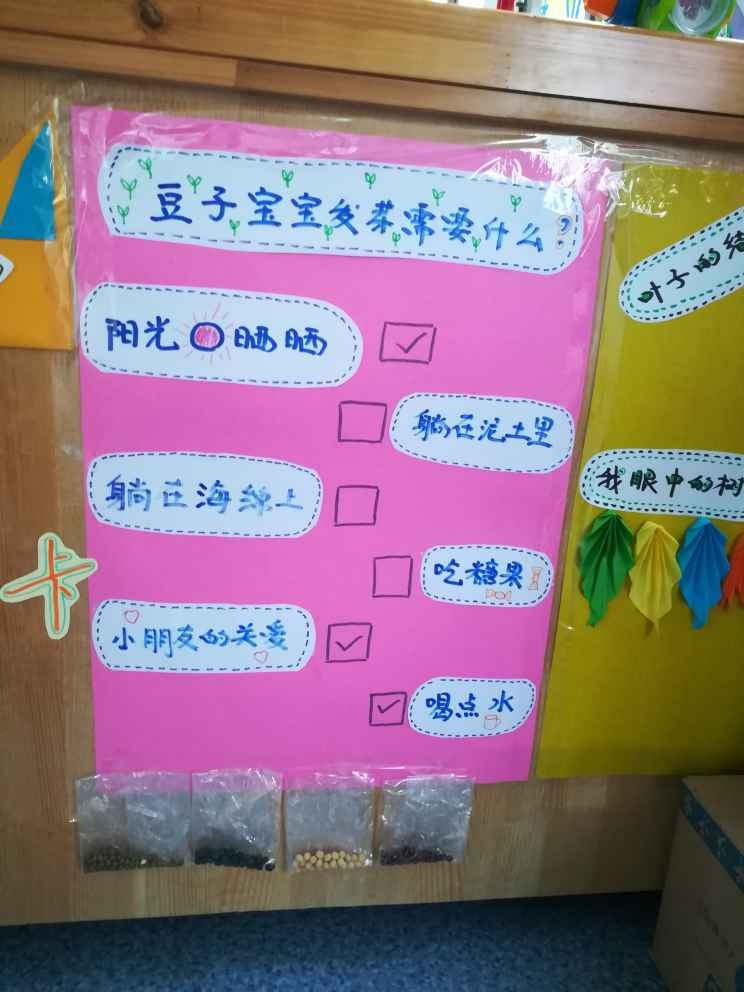 豆子宝宝发芽需要什么?
阳光晒晒
躺在泥土里
躺在海绵上
吃糖果
小朋友的关爱
喝点水
叶子的结
我眼中的树
卡